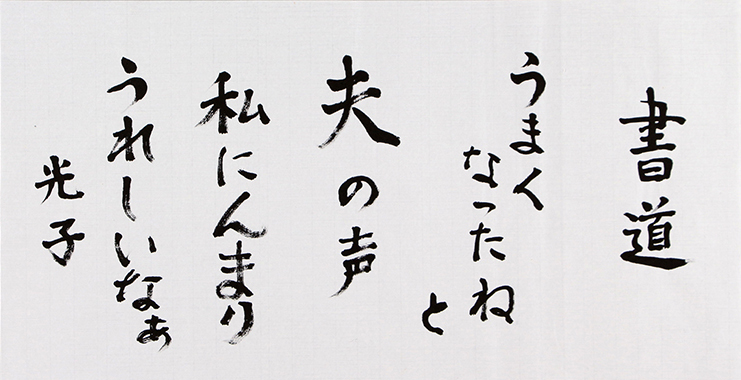 書道
うまく
なったね
と
夫の声
私にんまり
うれしいなぁ
光子